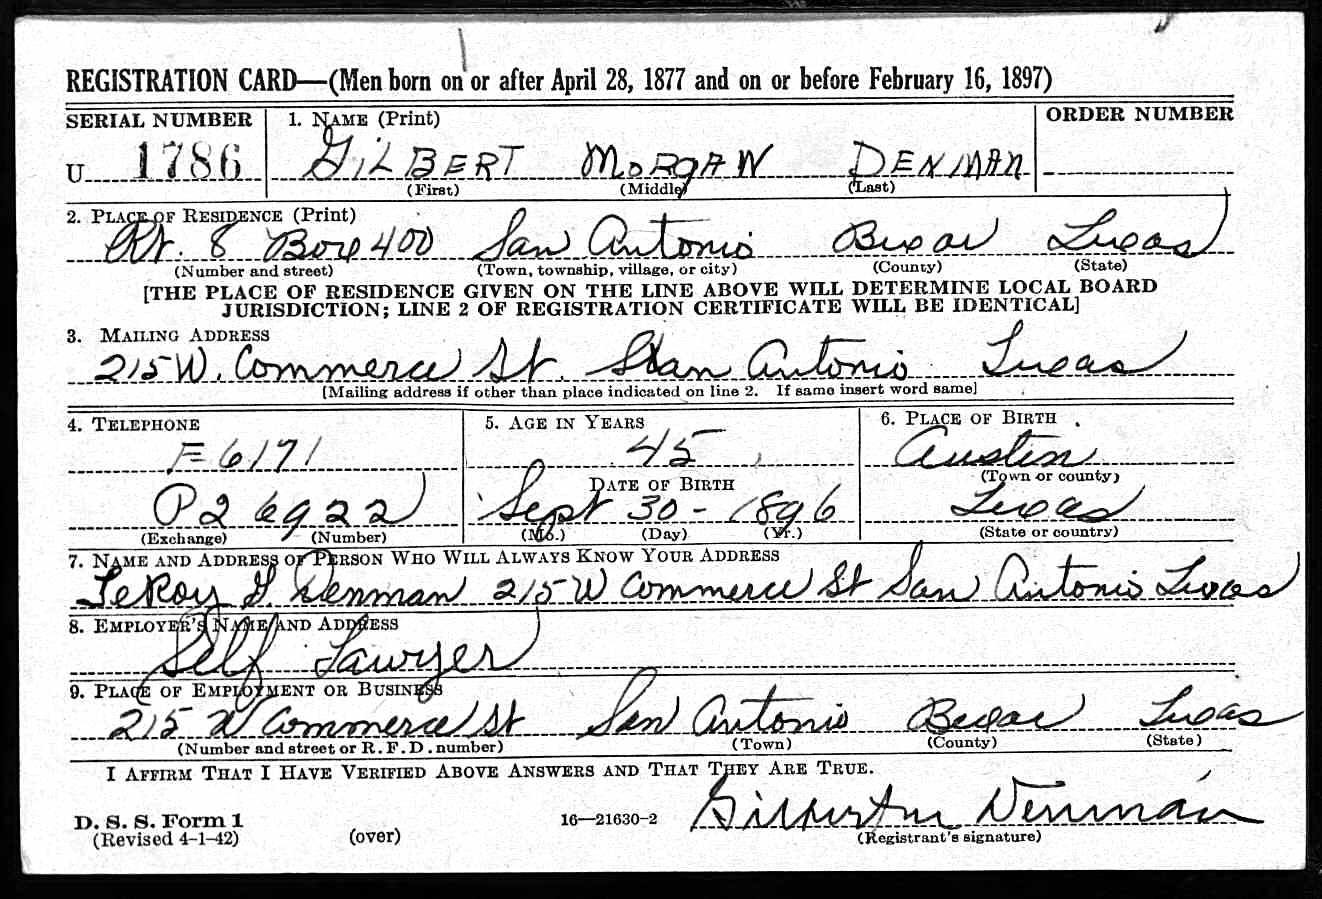 REGISTRATION CARD—(Men born on or after April 28, 1877 and on or before February 16, 1897)
SERIAL NUMBER 1. NAME (Print) ORDER NUMBER
U 1786 GILBERT MORGAN DENMAN
(First) (Middle) (Last)
2. PLACE OF RESIDENCE (Print)
Rt. 8 Box 400 San Antonio Bexar Texas
(Number and street) (Town, township, village, or city) (County) (State)
[THE PLACE OF RESIDENCE GIVEN ON THE LINE ABOVE WILL DETERMINE LOCAL BOARD
JURISDICTION; LINE 2 OF REGISTRATION CERTIFICATE WILL BE IDENTICAL]
3. MAILING ADDRESS
215 W. Commerce St. San Antonio Texas
[Mailing address if other than place indicated on line 2. If same insert word same]
4. TELEPHONE 5. AGE IN YEARS 6. PLACE OF BIRTH
F 6171 45 Austin
DATE OF BIRTH (Town or county)
P2 6922 Sept 30 - 1896 Texas
(Exchange) (Number) (Mo.) (Day) (Yr.) (State or country)
7. NAME AND ADDRESS OF PERSON WHO WILL ALWAYS KNOW YOUR ADDRESS
LeRoy G. Denman 215 W Commerce St San Antonio Texas
8. EMPLOYER'S NAME AND ADDRESS
Self Lawyer
9. PLACE OF EMPLOYMENT OR BUSINESS
215 W Commerce St San Antonio Bexar Texas
(Number and street or R. F. D. number) (Town) (County) (State)
I AFFIRM THAT I HAVE VERIFIED ABOVE ANSWERS AND THAT THEY ARE TRUE.
D. S. S. Form 1 16—21630-2 Gilbert M Denman
(Revised 4-1-42) (over) (Registrant's signature)